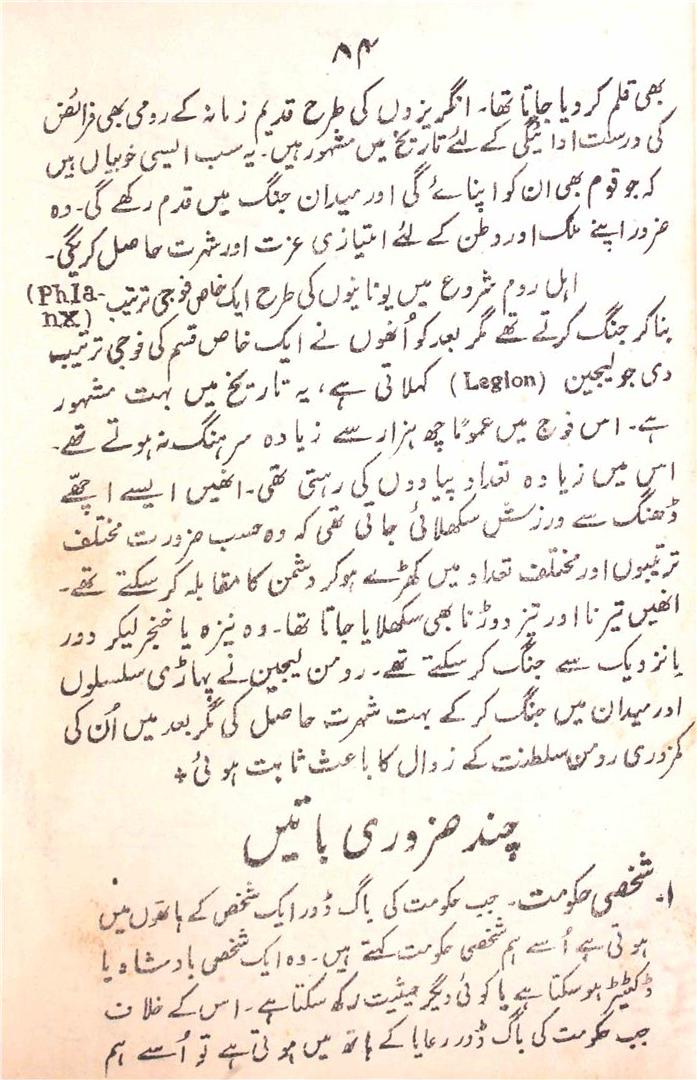 ۸۴
بھی قلم کر دیا جاتا تھا۔ انگریزوں کی طرح قدیم زمانہ کے رومی بھی فرائض
کی درست ادائیگی کے لئے تاریخ میں مشہور ہیں۔ یہ سب ایسی خوبیاں ہیں
کہ جو قوم بھی ان کو اپنائے گی اور میدان جنگ میں قدم رکھے گی۔ وہ
ضرور اپنے ملک اور وطن کے لئے امتیازی عزت اور شہرت حاصل کریگی۔
اہل روم شروع میں یونانیوں کی طرح ایک خاص فوجی ترتیب (Phla-
nX)
بنا کر جنگ کرتے تھے مگر بعد کو اُنھوں نے ایک خاص قسم کی فوجی ترتیب
دی جو لیجین (Legion) کہلاتی ہے، یہ تاریخ میں بہت مشہور
ہے۔ اس فوج میں عموماً چھ ہزار سے زیادہ سرہنگ نہ ہوتے تھے۔
اس میں زیادہ تعداد پیادوں کی رہتی تھی۔ انھیں ایسے اچھّے
ڈھنگ سے ورزش سکھلائی جاتی تھی کہ وہ حسب ضرورت مختلف
ترتیبوں اور مختلف تعداد میں کھڑے ہوکر دشمن کا مقابلہ کر سکتے تھے۔
انھیں تیرنا اور تیز دوڑنا بھی سکھلایا جاتا تھا۔ وہ نیزہ یا خنجر لیکر دور
یا نزدیک سے جنگ کر سکتے تھے۔ رومن لیجین نے پہاڑی سلسلوں
اور میدان میں جنگ کر کے بہت شہرت حاصل کی مگر بعد میں اُن کی
کمزوری رومن سلطنت کے زوال کا باعث ثابت ہوئی ٭
چند ضروری باتیں
۱۔ شخصی حکومت۔ جب حکومت کی باگ ڈور ایک شخص کے ہاتھوں میں
ہوتی ہے اُسے ہم شخصی حکومت کہتے ہیں۔ وہ ایک شخص بادشاہ یا
ڈکٹیٹر ہوسکتا ہے یا کوئی دیگر حیثیت رکھ سکتا ہے۔ اس کے خلاف
جب حکومت کی باگ ڈور رعایا کے ہاتھ میں ہوتی ہے تو اُسے ہم